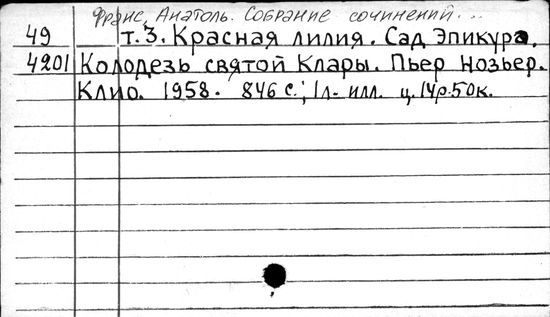 Франс, Анатоль. Собрание сочинений...
49 т. 3. Красная лилия. Сад Эпикура.
4201 Колодезь святой Клары. Пьер Нозьер.
Клио. 1958. 846 с.; 1л. илл. ц. 14р.50к.